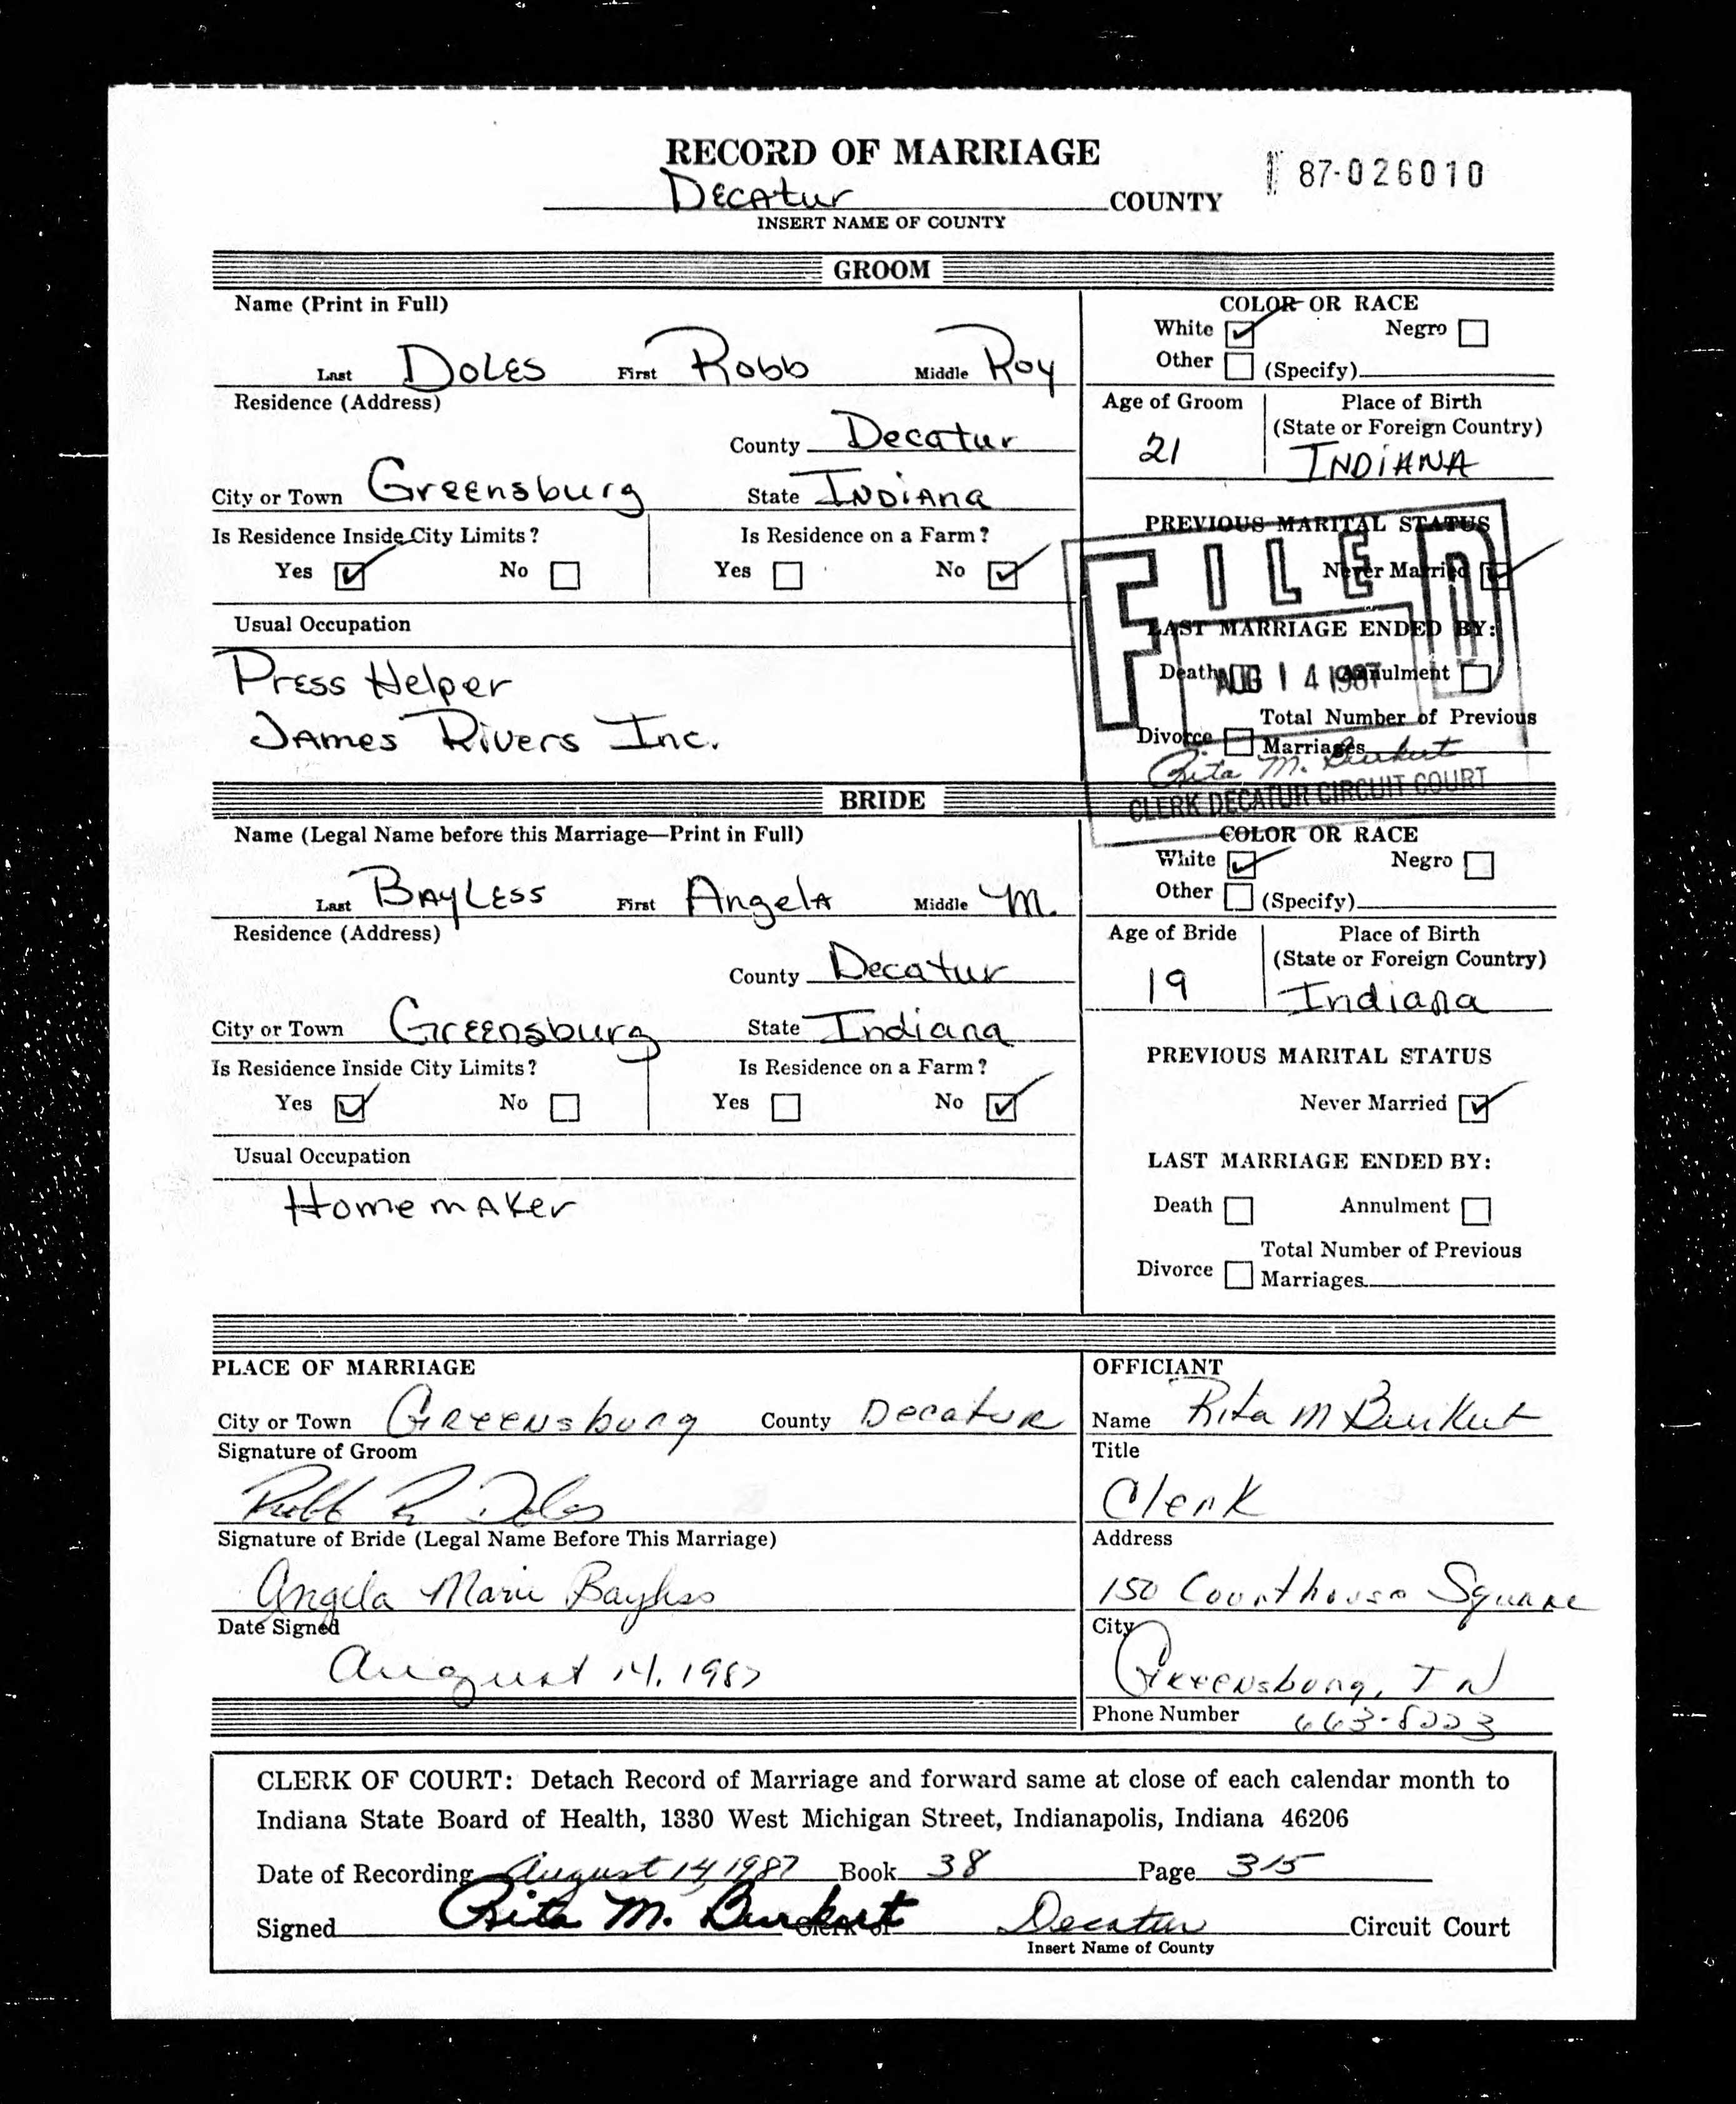 RECORD OF MARRIAGE
87-026010
Decatur COUNTY
INSERT NAME OF COUNTY
GROOM
Name (Print in Full)
Last Doles First Robb Middle Roy
COLOR OR RACE
White ☑ Negro ☐
Other ☐ (Specify)
Residence (Address)
County Decatur
City or Town Greensburg State Indiana
Age of Groom 21
Place of Birth
(State or Foreign Country)
INDIANA
Is Residence Inside City Limits?
Yes ☑ No ☐
Is Residence on a Farm?
Yes ☐ No ☑
PREVIOUS MARITAL STATUS
Never Married ☑
FILED
LAST MARRIAGE ENDED BY:
Death Annulment ☐
AUG 14 1987
Total Number of Previous
Divorce ☐ Marriages
Rita M. Burkert
CLERK DECATUR CIRCUIT COURT
Usual Occupation
Press Helper
James Rivers Inc.
BRIDE
Name (Legal Name before this Marriage—Print in Full)
Last Bayless First Angela Middle M.
COLOR OR RACE
White ☑ Negro ☐
Other ☐ (Specify)
Residence (Address)
County Decatur
City or Town Greensburg State Indiana
Age of Bride 19
Place of Birth
(State or Foreign Country)
Indiana
Is Residence Inside City Limits?
Yes ☑ No ☐
Is Residence on a Farm?
Yes ☐ No ☑
PREVIOUS MARITAL STATUS
Never Married ☑
Usual Occupation
Homemaker
LAST MARRIAGE ENDED BY:
Death ☐ Annulment ☐
Total Number of Previous
Divorce ☐ Marriages
PLACE OF MARRIAGE
City or Town Greensburg County Decatur
Signature of Groom
Robb R Doles
Signature of Bride (Legal Name Before This Marriage)
Angela Marie Bayless
Date Signed
August 14, 1987
OFFICIANT
Name Rita M Burkert
Title
Clerk
Address
150 Courthouse Square
City
Greensburg, IN
Phone Number 663-8223
CLERK OF COURT: Detach Record of Marriage and forward same at close of each calendar month to
Indiana State Board of Health, 1330 West Michigan Street, Indianapolis, Indiana 46206
Date of Recording August 14, 1987 Book 38 Page 315
Signed Rita M. Burkert Clerk of Decatur Circuit Court
Insert Name of County